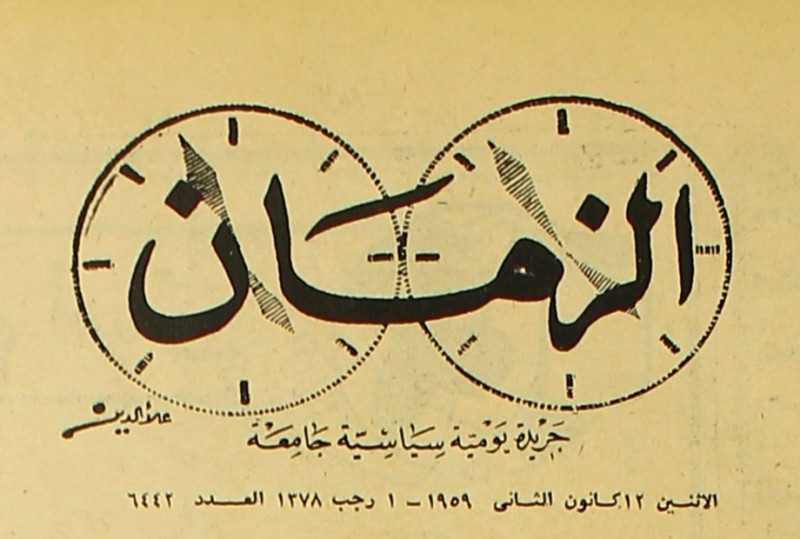 الزمان
علاءالدين
جَريدة يَوميّة سِيَاسِيّة جَامِعَة
الاثنين ١٢ كانون الثانى ١٩٥٩ – ١ رجب ١٣٧٨ العـــدد ٦٤٤٢